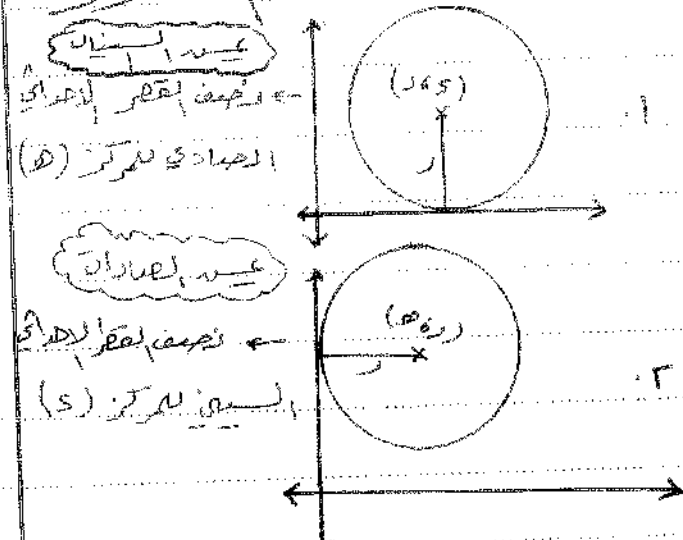 ١. (د، ر)
ر
يمس السينات
← ونصف القطر الإحداثي
الصادي للمركز (ه)
٢. (ر، ه)
ر
يمس الصادات
← نصف القطر الإحداثي
السيني للمركز (د)